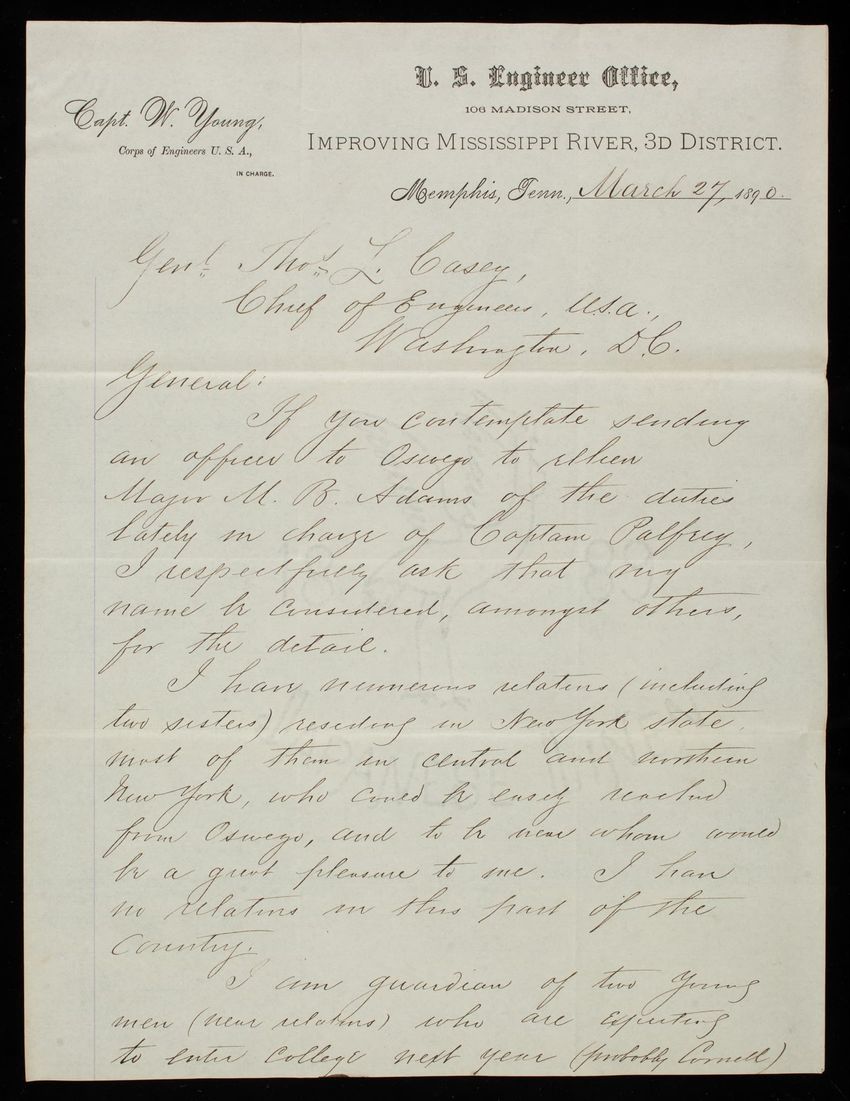 U. S. Engineer Office,
106 MADISON STREET,
IMPROVING MISSISSIPPI RIVER, 3D DISTRICT.
Capt. W. Young,
Corps of Engineers U. S. A.,
IN CHARGE.
Memphis, Tenn., March 27, 1890.
Genl. Thos. L. Casey,
Chief of Engineers, U.S.A.,
Washington, D.C.
General:
If you contemplate sending
an officer to Oswego to relieve
Major M. B. Adams of the duties
lately in charge of Captain Palfrey,
I respectfully ask that my
name be considered, amongst others,
for the detail.
I have numerous relatives (including
two sisters) residing in New York state,
most of them in central and northern
New York, who could be easily reached
from Oswego, and to be near whom would
be a great pleasure to me. I have
no relatives in this part of the
Country.
I am guardian of two young
men (near relatives) who are expecting
to enter college next year (probably Cornell)